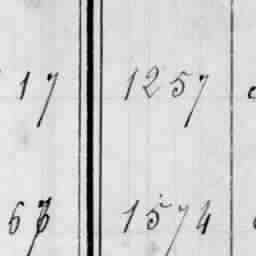 17 1257
1574